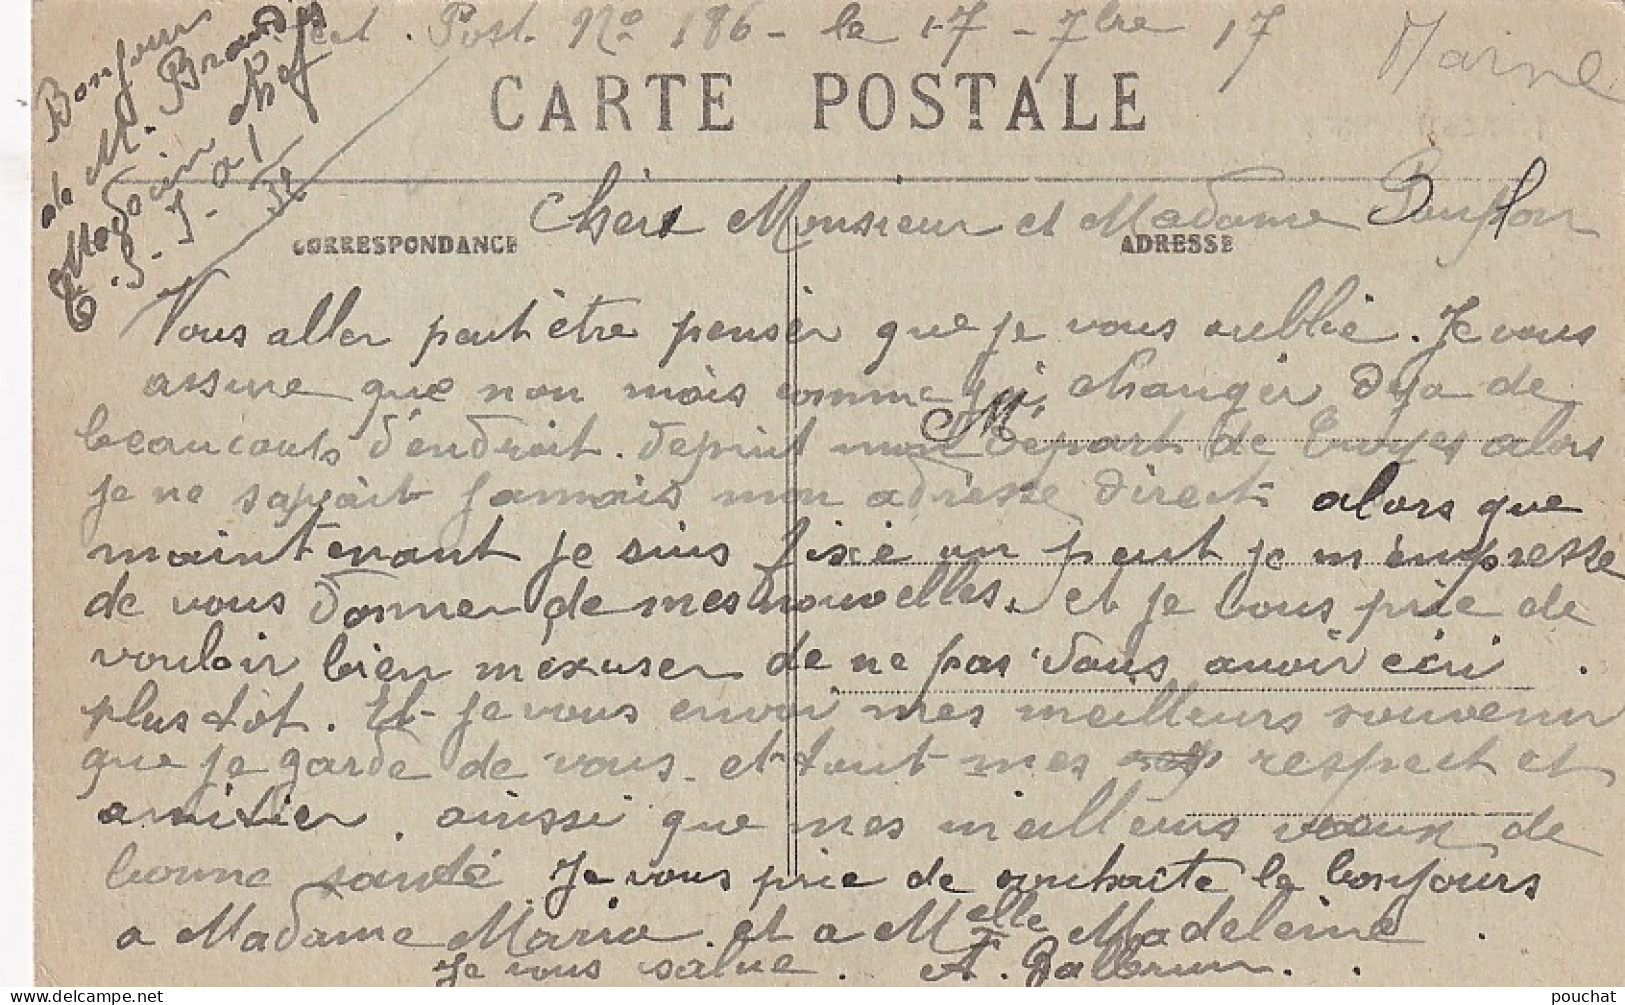 Sect. Post. No 186 - le 17 - 7bre 17
Marne
Bonjour
de M.
Médecin chef
CARTE POSTALE
Chère Monsieur et Madame
CORRESPONDANCE
ADRESSE
Vous aller peut être penser que je vous oublie. Je vous
assure que non mais comme j'ai changer deja de
beaucouts d'endroit. depuit mon départ de Troyes alors
M
je ne sapait jamais mon adresse direct alors que
maintenant je suis fixé un peut je m'empresse
de vous donner de mes nouvelles. et je vous prie de
vouloir bien m'exuser de ne pas vous avoir écri
plus tôt. Et je vous envoi mes meilleurs souvenir
que je garde de vous et tout mes respect et
amitier. ainssi que mes meilleurs voeux de
bonne santé Je vous prie de souhaite le bonjours
a Madame Maria et a Melle Madeleine.
Je vous salue. A.
pouchat